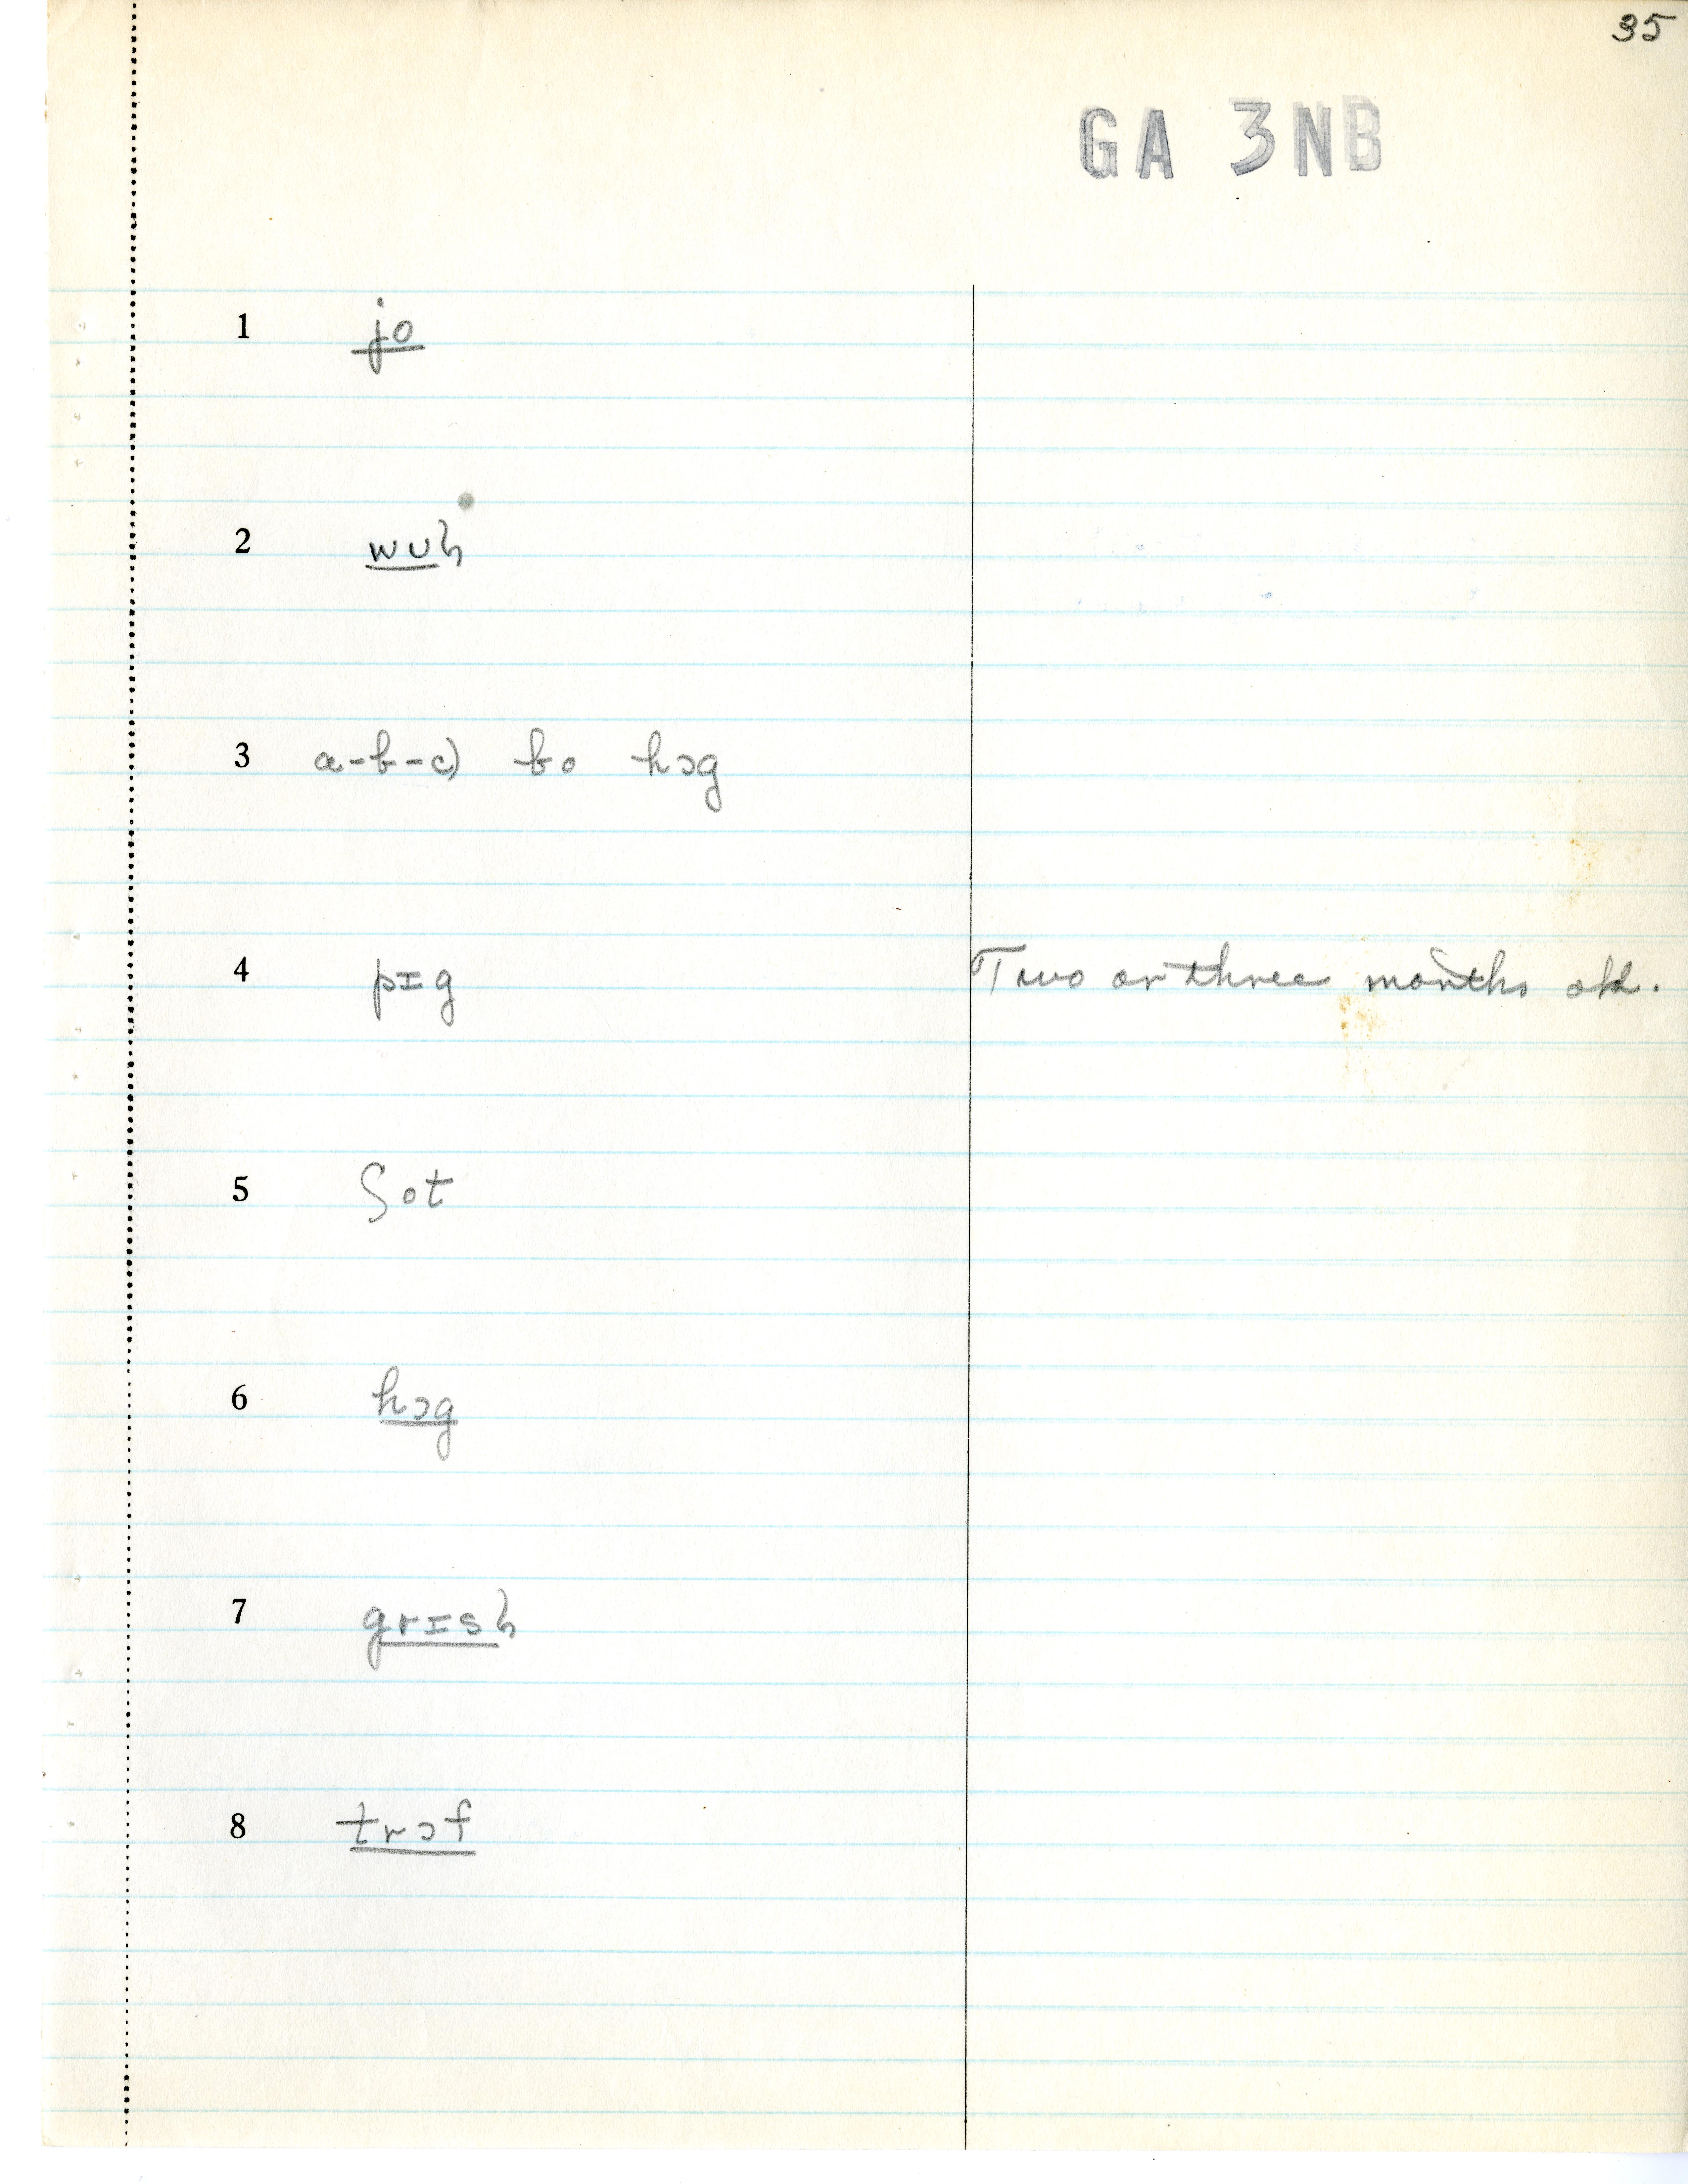 35
GA 3NB
1 jo
2 wuɦ
3 a-b-c) bo hɔg
4 pɪg Two or three months old.
5 ʃot
6 hɔg
7 grɪsɦ
8 trɔf